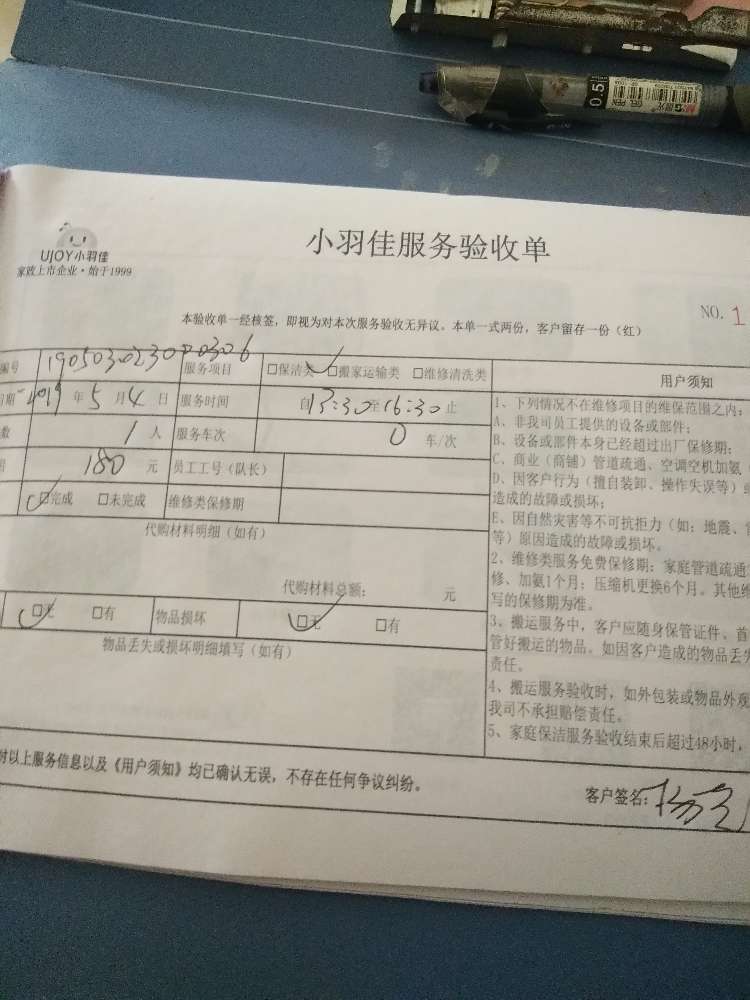 0.5
GEL PEN
UJOY小羽佳
家政上市企业·始于1999
小羽佳服务验收单
NO. 1
本验收单一经核签，即视为对本次服务验收无异议。本单一式两份，客户留存一份（红）
编号 服务项目 □保洁类 □搬家运输类 □维修清洗类 用户须知
日期 2019 年 5 月 4 日 服务时间 自 13:30 至 16:30 止
数 1 人 服务车次 0 车/次
180 元 员工工号（队长）
□完成 □未完成 维修类保修期
代购材料明细（如有）
代购材料总额： 元
□无 □有 物品损坏 □无 □有
物品丢失或损坏明细填写（如有）
1、下列情况不在维修项目的维保范围之内：
A、非我司员工提供的设备或部件；
B、设备或部件本身已经超过出厂保修期；
C、商业（商铺）管道疏通、空调空机加氨
D、因客户行为（擅自装卸、操作失误等）或
造成的故障或损坏；
E、因自然灾害等不可抗拒力（如：地震、
等）原因造成的故障或损坏。
2、维修类服务免费保修期：家庭管道疏通
修、加氨1个月；压缩机更换6个月。其他维
写的保修期为准。
3、搬运服务中，客户应随身保管证件、首
管好搬运的物品。如因客户造成的物品丢失
责任。
4、搬运服务验收时，如外包装或物品外观
我司不承担赔偿责任。
5、家庭保洁服务验收结束后超过48小时，
对以上服务信息以及《用户须知》均已确认无误，不存在任何争议纠纷。
客户签名：